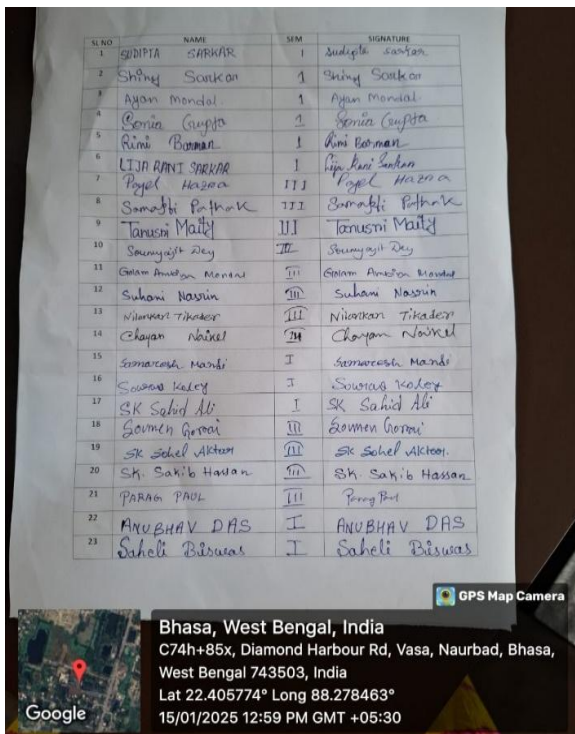 SL NO NAME SEM SIGNATURE
1 SUDIPTA SARKAR 1 Sudipta Sarkar
2 Shiny Sarkar 1 Shiny Sarkar
3 Ayan Mondal. 1 Ayan Mondal
4 Sonia Gupta 1 Sonia Gupta
5 Rimi Barman 1 Rimi Barman
6 LIJA RANI SARKAR 1 Lija Rani Sarkar
7 Payel Hazra III Payel Hazra
8 Samapti Pathak III Samapti Pathak
9 Tanusri Maity III Tanusri Maity
10 Soumyajit Dey III Soumyajit Dey
11 Golam Mondal III Golam Mondal
12 Suhani Nasrin III Suhani Nasrin
13 Nilonkan Tikader III Nilonkan Tikader
14 Chayan Naikel III Chayan Naikel
15 Samaresh Mandi I Samaresh Mandi
16 Sourav Koley I Sourav Koley
17 SK Sahid Ali I SK Sahid Ali
18 Soumen Gorai III Soumen Gorai
19 SK Sohel Aktar III SK Sohel Aktar.
20 SK. Sakib Hassan III SK. Sakib Hassan
21 PARAG PAUL III Parag Paul
22 ANUBHAV DAS I ANUBHAV DAS
23 Saheli Biswas I Saheli Biswas
GPS Map Camera
Bhasa, West Bengal, India
C74h+85x, Diamond Harbour Rd, Vasa, Naurbad, Bhasa,
West Bengal 743503, India
Lat 22.405774° Long 88.278463°
15/01/2025 12:59 PM GMT +05:30
Google